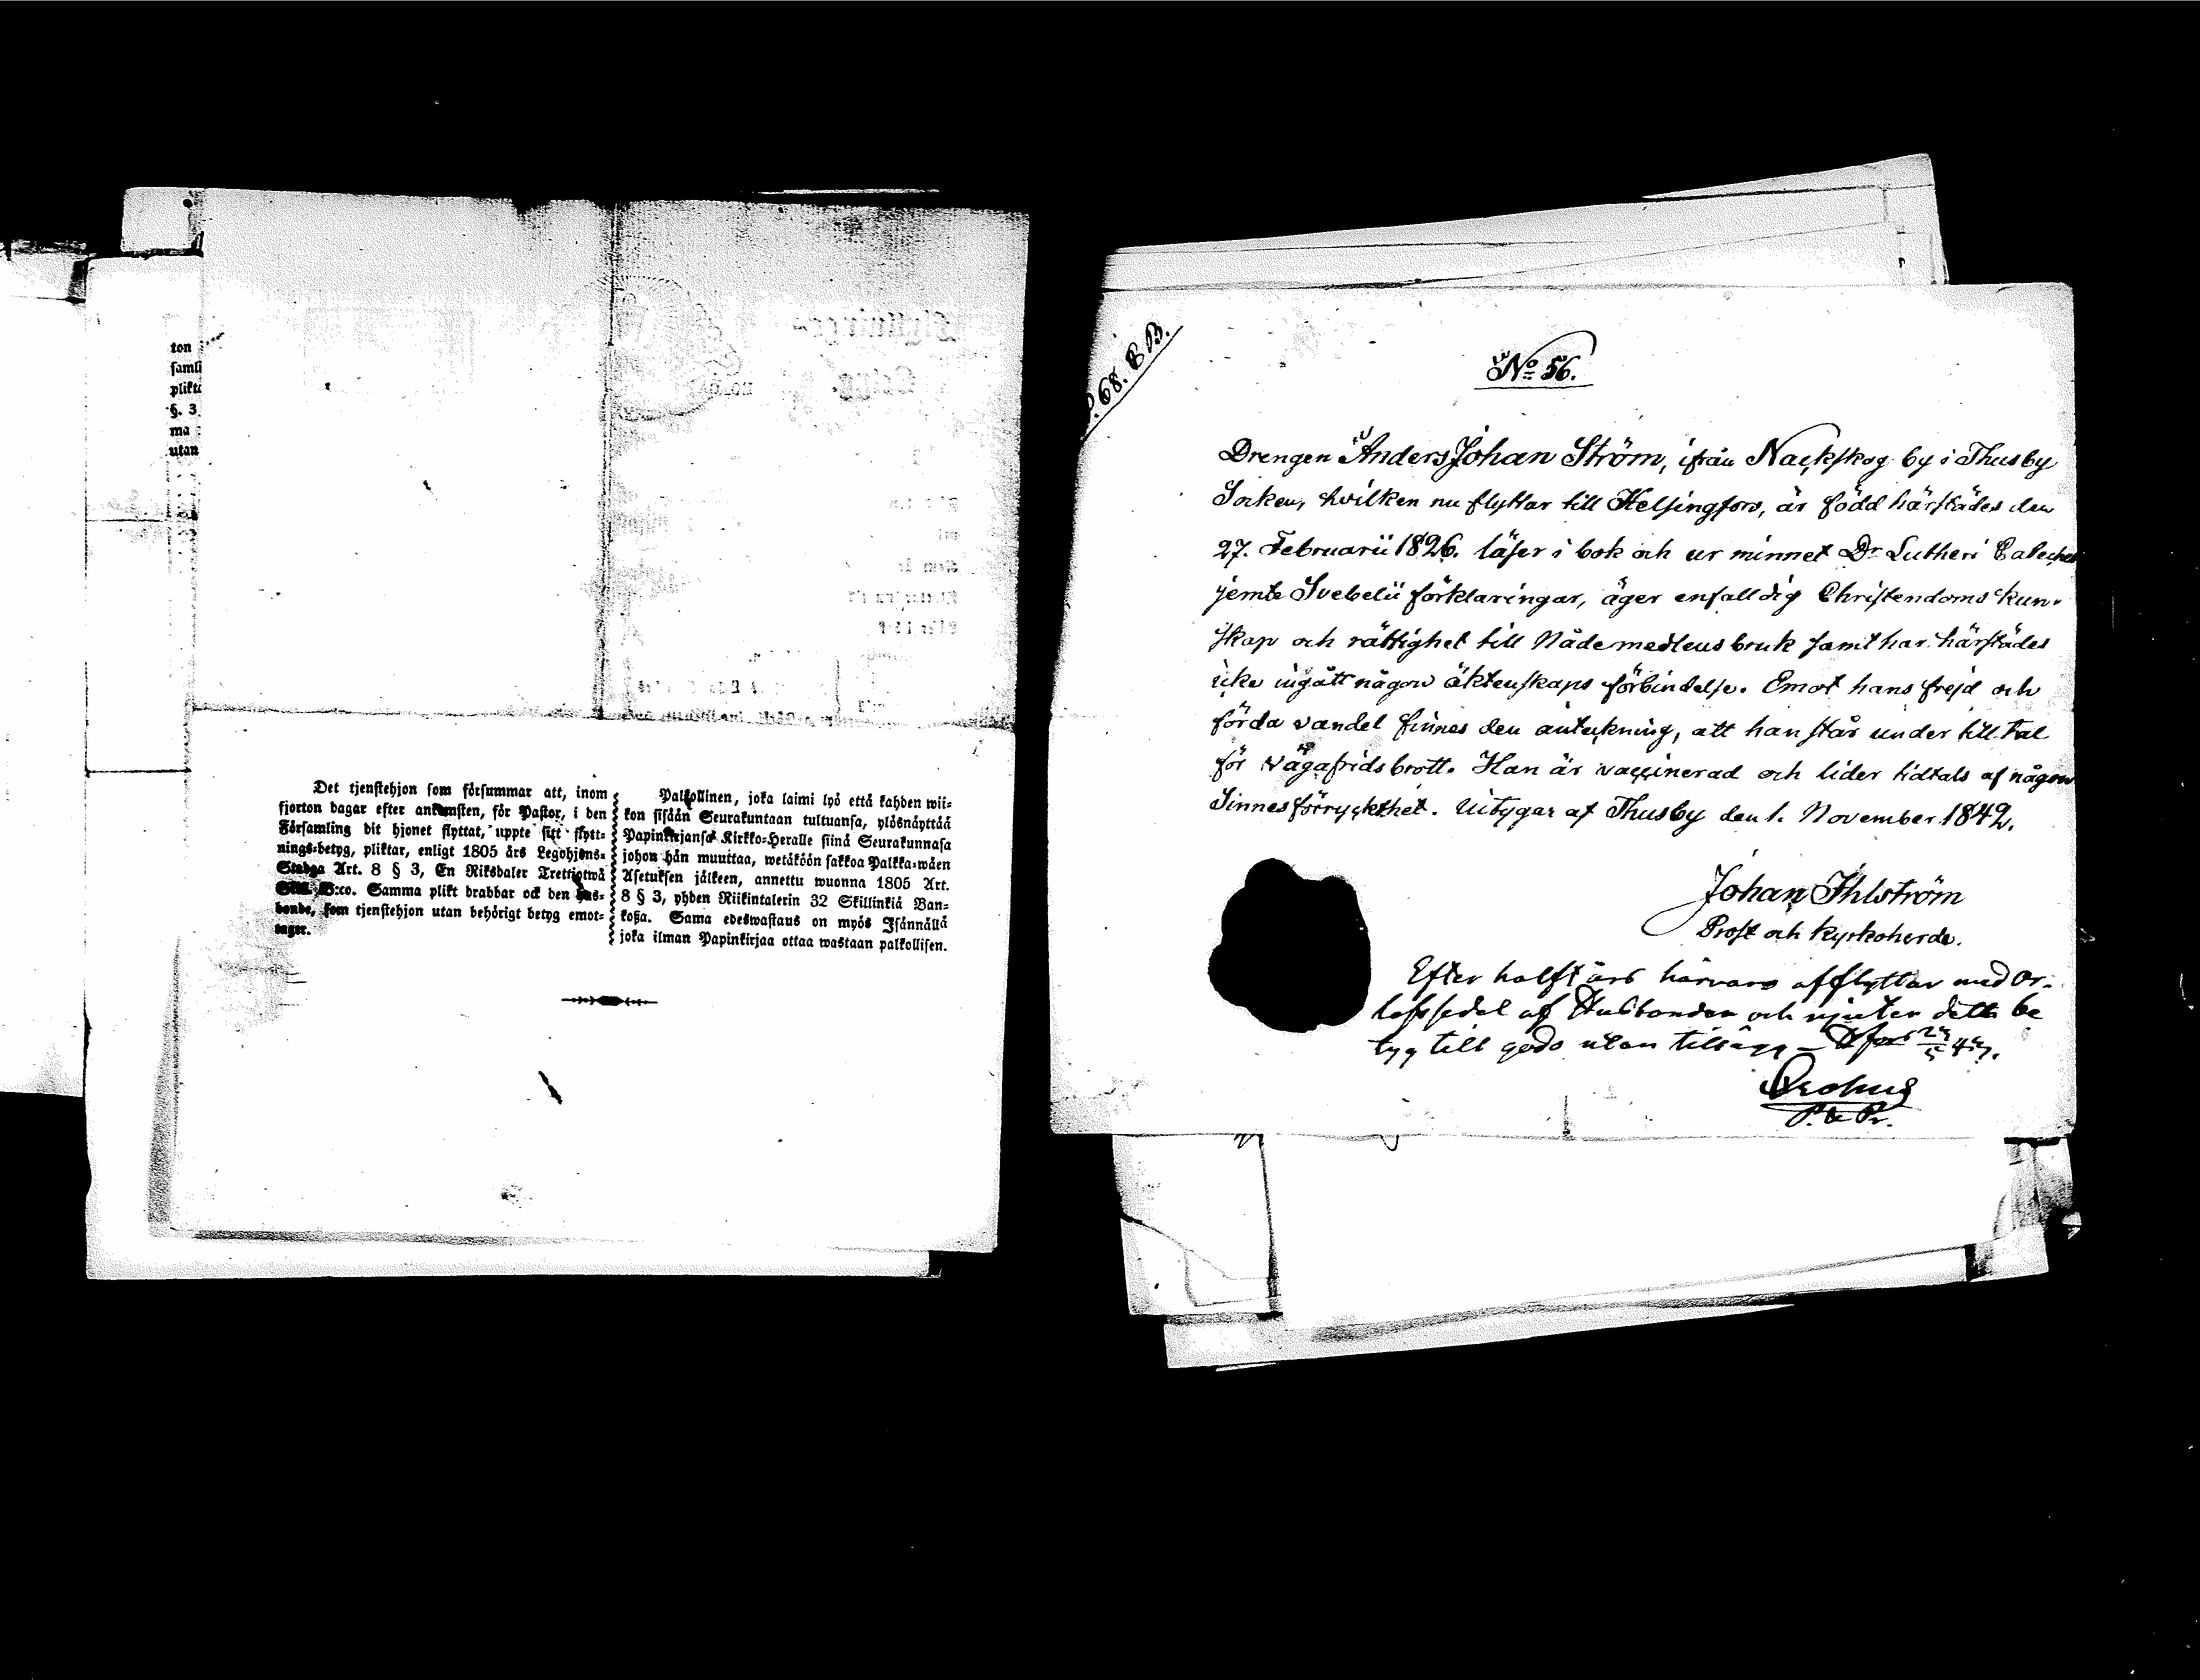 ton
samli
plikta
§. 3
ma
utan
Det tjenstehjon som försummar att, inom
fjorton dagar efter ankomsten, för Pastor, i den
Församling dit hjonet flyttat, uppte sitt flytt-
nings-betyg, pliktar, enligt 1805 års Legohjons-
Stadga Art. 8 § 3, En Riksdaler Trettiotwå
Skill. B:co. Samma plikt drabbar ock den hus-
bonde, som tjenstehjon utan behörigt betyg emot-
tager.
Palkollinen, joka laimi lyö että kahden wii-
kon sisään Seurakuntaan tultuansa, ylösnäyttää
Papinkirjansa Kirkko-Heralle siinä Seurakunnasa
johon hän muuttaa, wetäköön sakkoa Palkka-wäen
Asetuksen jälkeen, annettu wuonna 1805 Art.
8 § 3, yhden Riikintalerin 32 Skillinkiä Ban-
koßa. Sama edeswastaus on myös Isännällä
joka ilman Papinkirjaa ottaa wastaan palkollisen.
P. 68. B.
No 56.
Drengen Anders Johan Ström, ifrån Nackskog by i Thusby
Socken, hvilken nu flyttar till Helsingfors, är född härstädes den
27. Februarii 1826. läser i bok och ur minnet Dr Lutheri Cateches
jemte Svebelii förklaringar, äger enfalldig Christendoms kun-
skap och rättighet till Nådemedlens bruk samt har härstädes
icke ingått någon äktenskaps förbindelse. Emot hans frejd och
förda vandel finnes den anteckning, att han står under tilltal
för vägafridsbrott. Han är vaccinerad och lider tidtals af någon
Sinnesförryckthet. Uitygar af Thusby den 1. November 1842.
Johan Ihlström
Prost och Kyrkoherde.
Efter halft års härvaro afflyttar med or-
lofssedel af Husbonden och njuter detta be
tyg till godo utan tillägg – Hfors 43.
P.